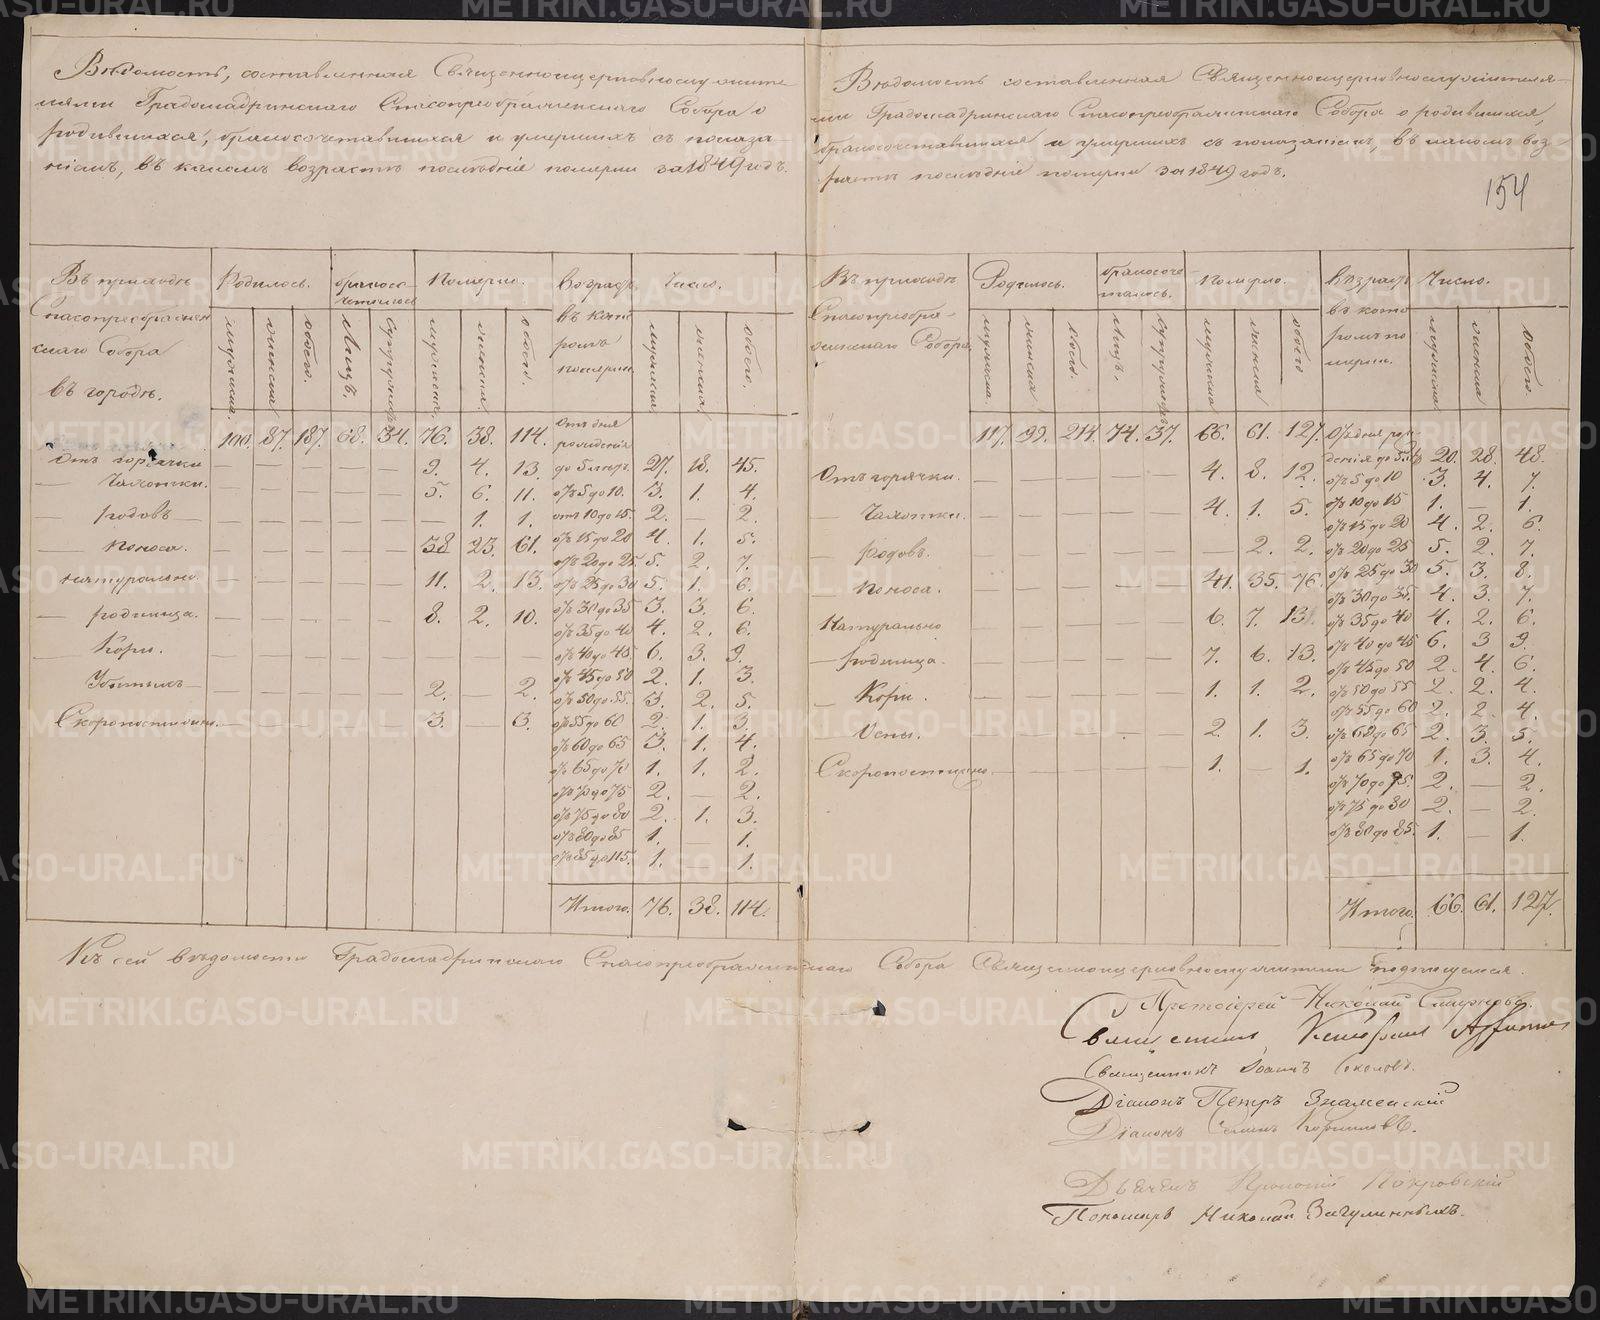 Ведомость, составленная Священноцерковнослужите
лями Градошадринскаго Спасопреображенскаго Собора о
родившихся, бракосочетавшихся и умершихъ съ показа
ніемъ, въ какомъ возрастѣ послѣдніе померли за 1849 годъ.
Въ приходѣ Родилось. бракосо- Померло. возрастъ Число.
четалось
Спасопреображен
скаго Собора
въ городѣ.
мужеска. женска обоего. Лицъ. супружествъ мужеска. женска. обоего. въ кото
ромъ
померли. мужеска женска. обоего.
100. 87. 187. 68. 34. 76. 38. 114. Отъ дня
рожденія
до 5 лѣтъ. 27. 18. 45.
Отъ горячки — — — — — 9. 4. 13.
— Чахотки. — — — — — 5. 6. 11. отъ 5 до 10. 3. 1. 4.
— родовъ — — — — — — 1. 1. отъ 10 до 15. 2. — 2.
— поноса. — — — — — 38 23. 61. отъ 15 до 20 4. 1. 5.
отъ 20 до 25. 5. 2. 7.
натурально. — — — — — 11. 2. 13. отъ 25 до 30 5. 1. 6.
— родимца. — — — — — 8. 2. 10. отъ 30 до 35 3. 3. 6.
отъ 35 до 40 4. 2. 6.
— Кори. — — — — — — — — отъ 40 до 45 6. 3. 9.
отъ 45 до 50 2. 1. 3.
Убитыхъ — — — — — — 2. — 2. отъ 50 до 55. 3. 2. 5.
Скоропостижно. — — — — — 3. — 3. отъ 55 до 60 2. 1. 3.
отъ 60 до 65 3. 1. 4.
отъ 65 до 70 1. 1. 2.
отъ 70 до 75 2. — 2.
отъ 75 до 80 2. 1. 3.
отъ 80 до 85 1. — 1.
отъ 85 до 115. 1. 1.
Итого. 76. 38. 114.
Ведомость составленная Священноцерковнослужителя-
ми Градошадринскаго Спасопреображенскаго Собора о родившихся,
бракосочетавшихся и умершихъ съ показаніемъ, въ какомъ воз-
растѣ послѣдніе померли за 1849 годъ.
154
Въ приходѣ Родилось. бракосоче- Померло. возрастъ Число.
талось.
Спасопреобра-
женскаго Собора.
мужеска. женска. обоего. Лицъ. супружествъ мужеска женска обоего въ кото
ромъ по
мерли. мужеска женска обоего.
117. 99. 214. 74. 37. 66. 61. 127. отъ дня рож-
денія до 5 л. 20. 28. 48.
Отъ горячки. — — — — — 4. 8. 12. отъ 5 до 10 3. 4. 7.
— Чахотки. — — — — — 4. 1. 5. отъ 10 до 15 1. — 1.
отъ 15 до 20 4. 2. 6.
— родовъ. — — — — — — 2. 2. отъ 20 до 25 5. 2. 7.
— поноса. — — — — — 41. 35. 76. отъ 25 до 30 5. 3. 8.
отъ 30 до 35. 4. 3. 7.
Натурально — — — — — 6. 7. 13. отъ 35 до 40 4. 2. 6.
— родимца. — — — — — 7. 6. 13. отъ 40 до 45 6. 3 9.
отъ 45 до 50 2. 4. 6.
— Кори. — — — — — 1. 1. 2. отъ 50 до 55 2. 2. 4.
отъ 55 до 60 2. 2. 4.
— Оспы. — — — — — 2. 1. 3. отъ 60 до 65 2. 3. 5.
Скоропостижно. — — — — — 1. — 1. отъ 65 до 70 1. 3. 4.
отъ 70 до 75. 2. — 2.
отъ 75 до 80 2. — 2.
отъ 80 до 85. 1. — 1.
Итого. 66. 61. 127.
Къ сей ведомости Градошадринскаго Спасопреображенскаго Собора Священноцерковнослужители подписуемся.
Протоіерей Николай Смирновъ.
Священникъ
Священникъ Іоаннъ Соколовъ.
Діаконъ Петръ Знаменскій
Діаконъ
Дьячекъ Покровскій
Пономарь Николай
METRIKI.GASO-URAL.RU